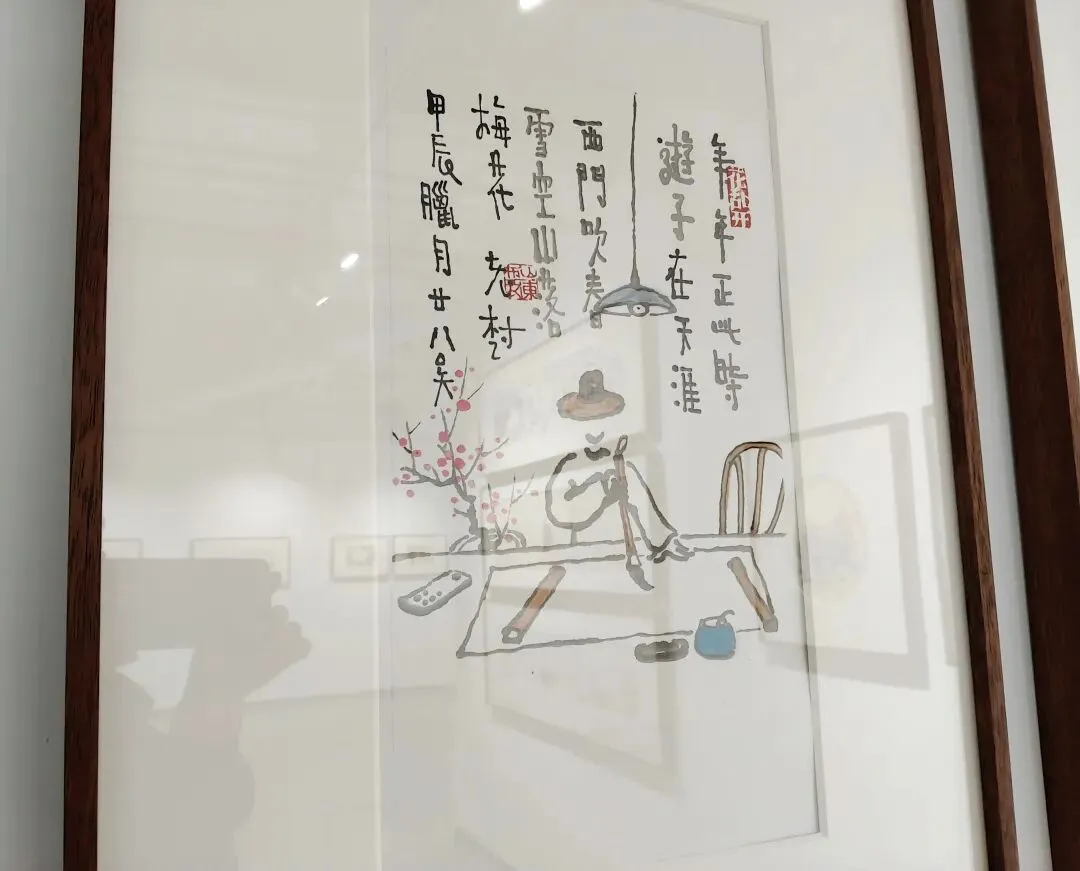 年年正此時
遊子在天涯
西門吹春
雪空山落
梅花 老村
甲辰臘月廿八